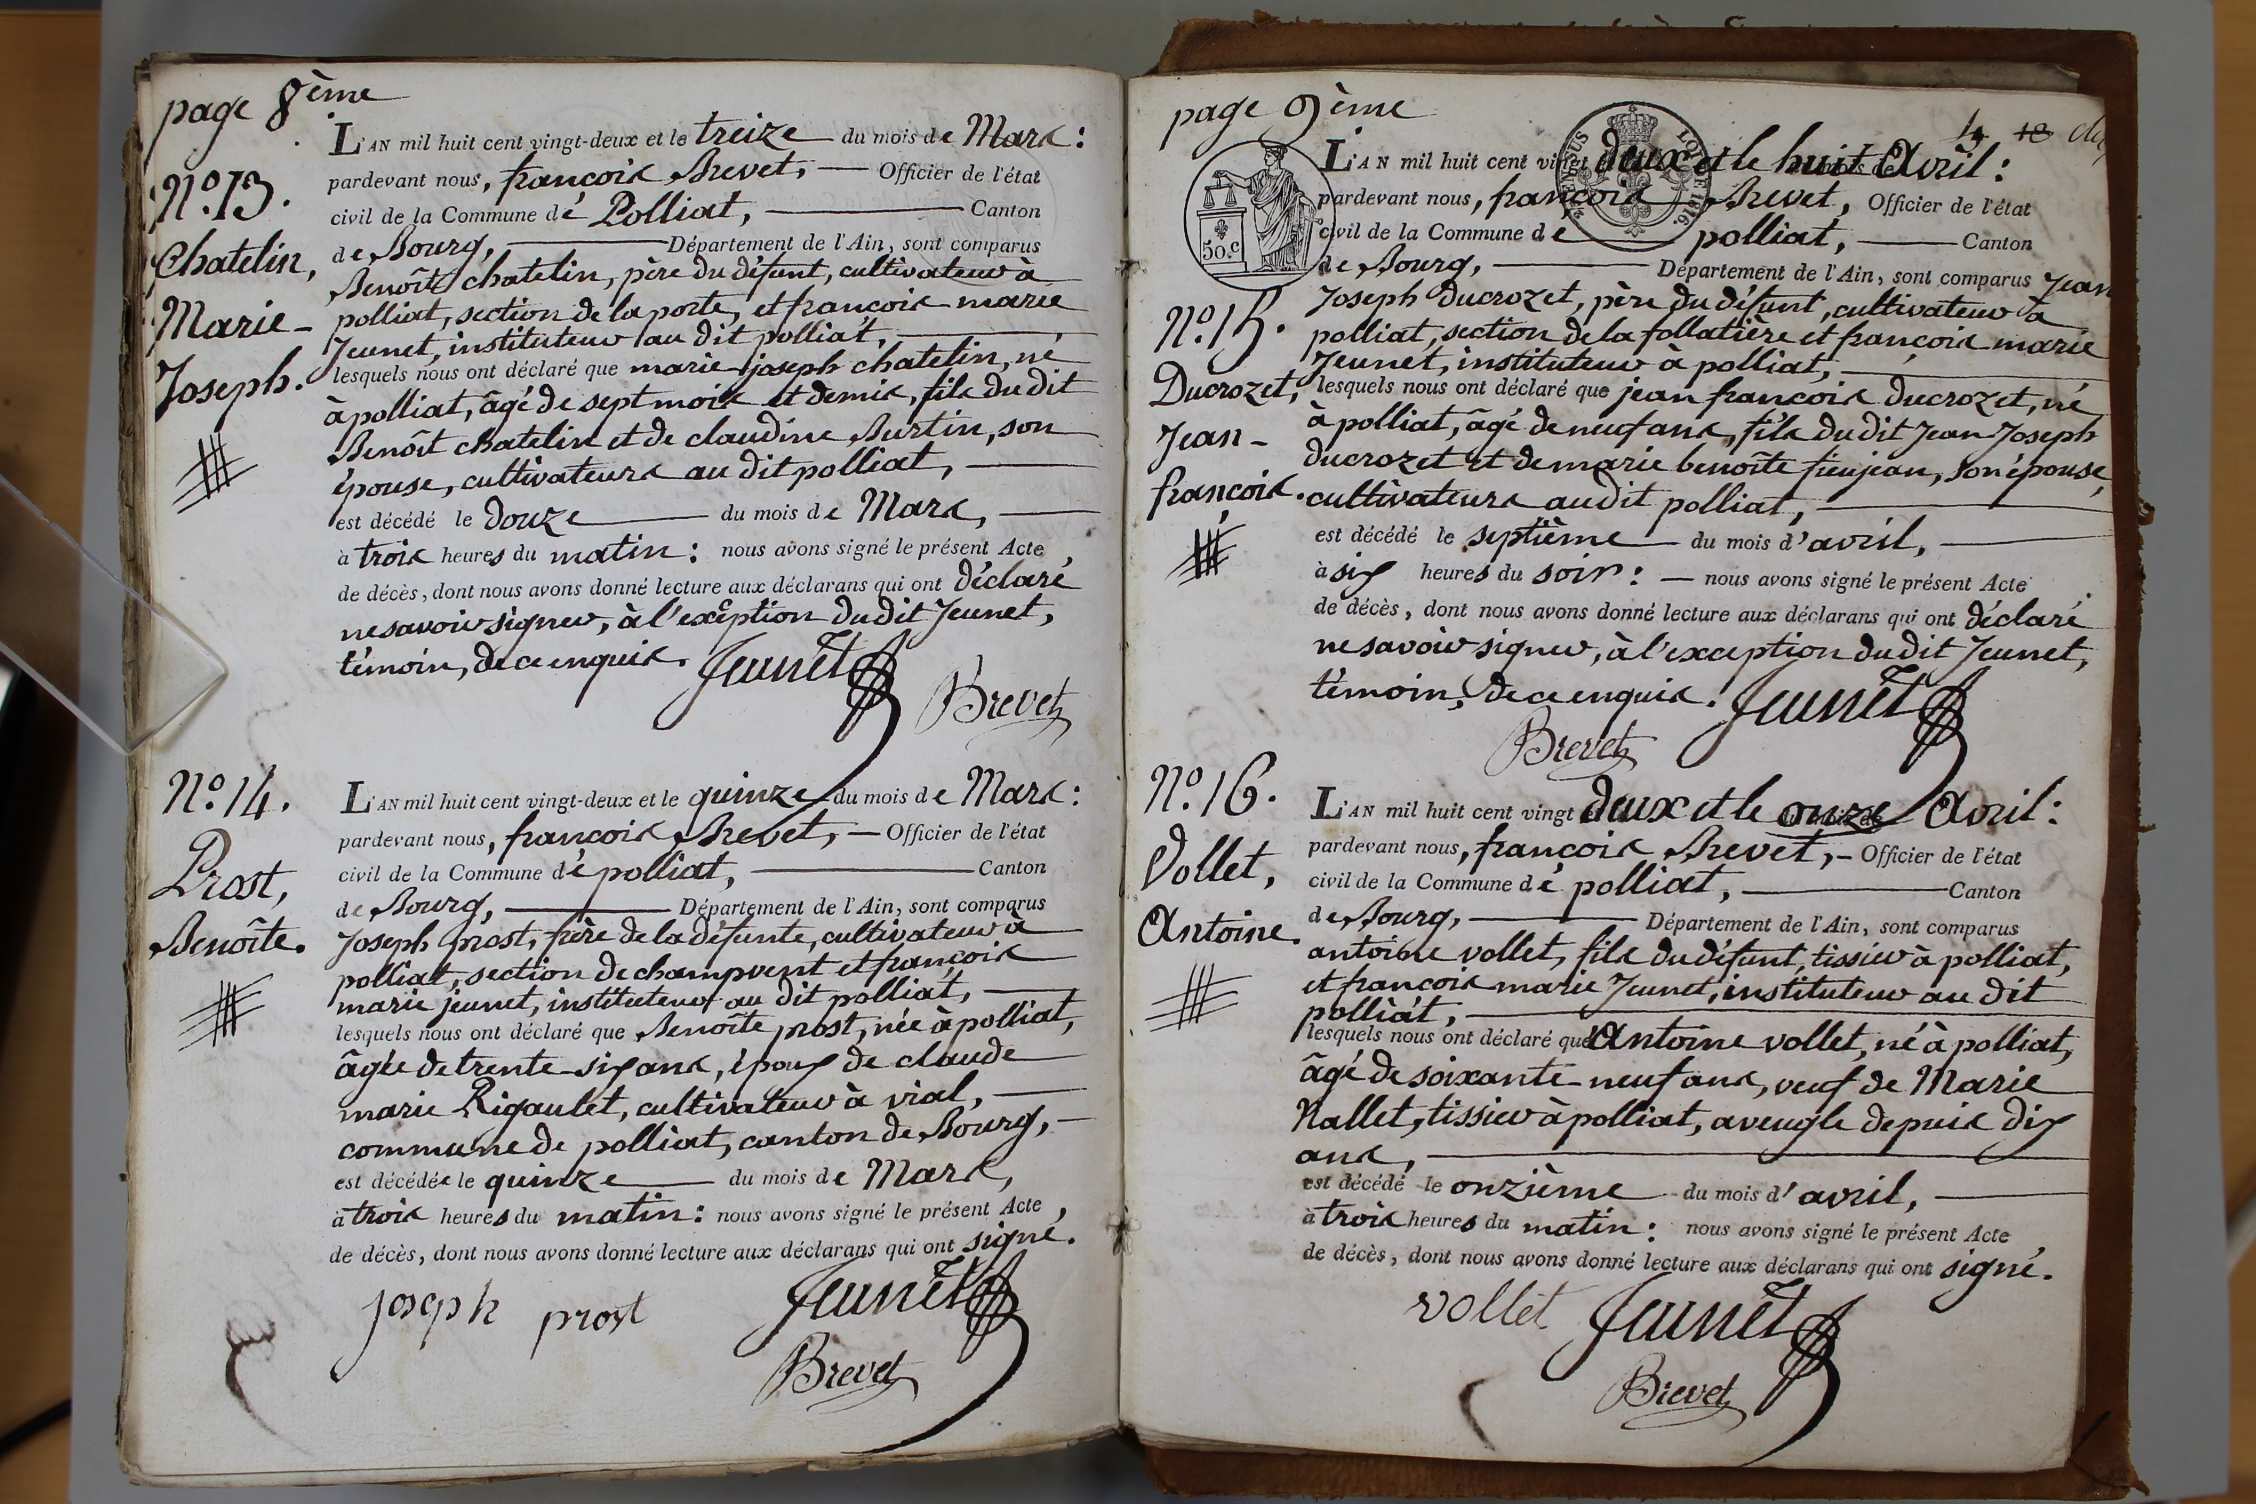 page 8ème
N.º 13.
Chatelin,
Marie-
Joseph.
L'AN mil huit cent vingt-deux et le treize du mois de Mars:
pardevant nous, françois Brevet, Officier de l'état
civil de la Commune de Polliat, Canton
de Bourg, Département de l'Ain, sont comparus
Benoît chatelin, père du défunt, cultivateur à
polliat, section de la porte, et françois marie
Jeunet, instituteur au dit polliat,
lesquels nous ont déclaré que marie joseph chatelin, né
à polliat, âgé de sept mois et demis, fils du dit
Benoît chatelin et de claudine Burtin, son
épouse, cultivateurs au dit polliat,
est décédé le douze du mois de Mars,
à trois heures du matin: nous avons signé le présent Acte,
de décès, dont nous avons donné lecture aux déclarans qui ont déclaré
ne savoir signer, à l'exception du dit Jeunet,
témoin, de ce enquis. Jeunet
Brevet
N.º 14.
Prost,
Benoîte.
L'AN mil huit cent vingt-deux et le quinze du mois de Mars:
pardevant nous, françois Brevet, Officier de l'état
civil de la Commune de polliat, Canton
de Bourg, Département de l'Ain, sont comparus
Joseph prost, frère de la défunte, cultivateur à
polliat, section de champvent et françois
marie jeunet, instituteur au dit polliat,
lesquels nous ont déclaré que Benoîte prost, née à polliat,
âgée de trente-six ans, époux de claude
marie Rigaulet, cultivateur à vial,
commune de polliat, canton de Bourg,
est décédée le quinze du mois de Mars,
à trois heures du matin: nous avons signé le présent Acte,
de décès, dont nous avons donné lecture aux déclarans qui ont signé.
joseph prost Jeunet
Brevet
page 9ème
50.c
LOI DE 1816.
N.º 15.
Ducrozet,
Jean-
françois.
L'AN mil huit cent vingt deux et le huit Avril:
pardevant nous, françois Brevet, Officier de l'état
civil de la Commune de polliat, Canton
de Bourg, Département de l'Ain, sont comparus Jean
Joseph Ducrozet, père du défunt, cultivateur à
polliat, section de la follatière et françois marie
Jeunet, instituteur à polliat,
lesquels nous ont déclaré que jean françois ducrozet, né
à polliat, âgé de neuf ans, fils du dit Jean Joseph
ducrozet et de marie benoîte fieujean, son épouse,
cultivateurs au dit polliat,
est décédé le septième du mois d'avril,
à six heures du soir: nous avons signé le présent Acte
de décès, dont nous avons donné lecture aux déclarans qui ont déclaré
ne savoir signer, à l'exception du dit Jeunet,
témoin, de ce enquis. Jeunet
Brevet
N.º 16.
Vollet,
Antoine.
L'AN mil huit cent vingt deux et le onze Avril:
pardevant nous, françois Brevet, Officier de l'état
civil de la Commune de polliat, Canton
de Bourg, Département de l'Ain, sont comparus
antoine vollet, fils du défunt, tissier à polliat,
et françois marie Jeunet, instituteur au dit
polliat,
lesquels nous ont déclaré que Antoine vollet, né à polliat,
âgé de soixante-neuf ans, veuf de Marie
Nallet, tissier à polliat, aveugle depuis dix
ans,
est décédé le onzième du mois d'avril,
à trois heures du matin: nous avons signé le présent Acte
de décès, dont nous avons donné lecture aux déclarans qui ont signé.
vollet Jeunet
Brevet